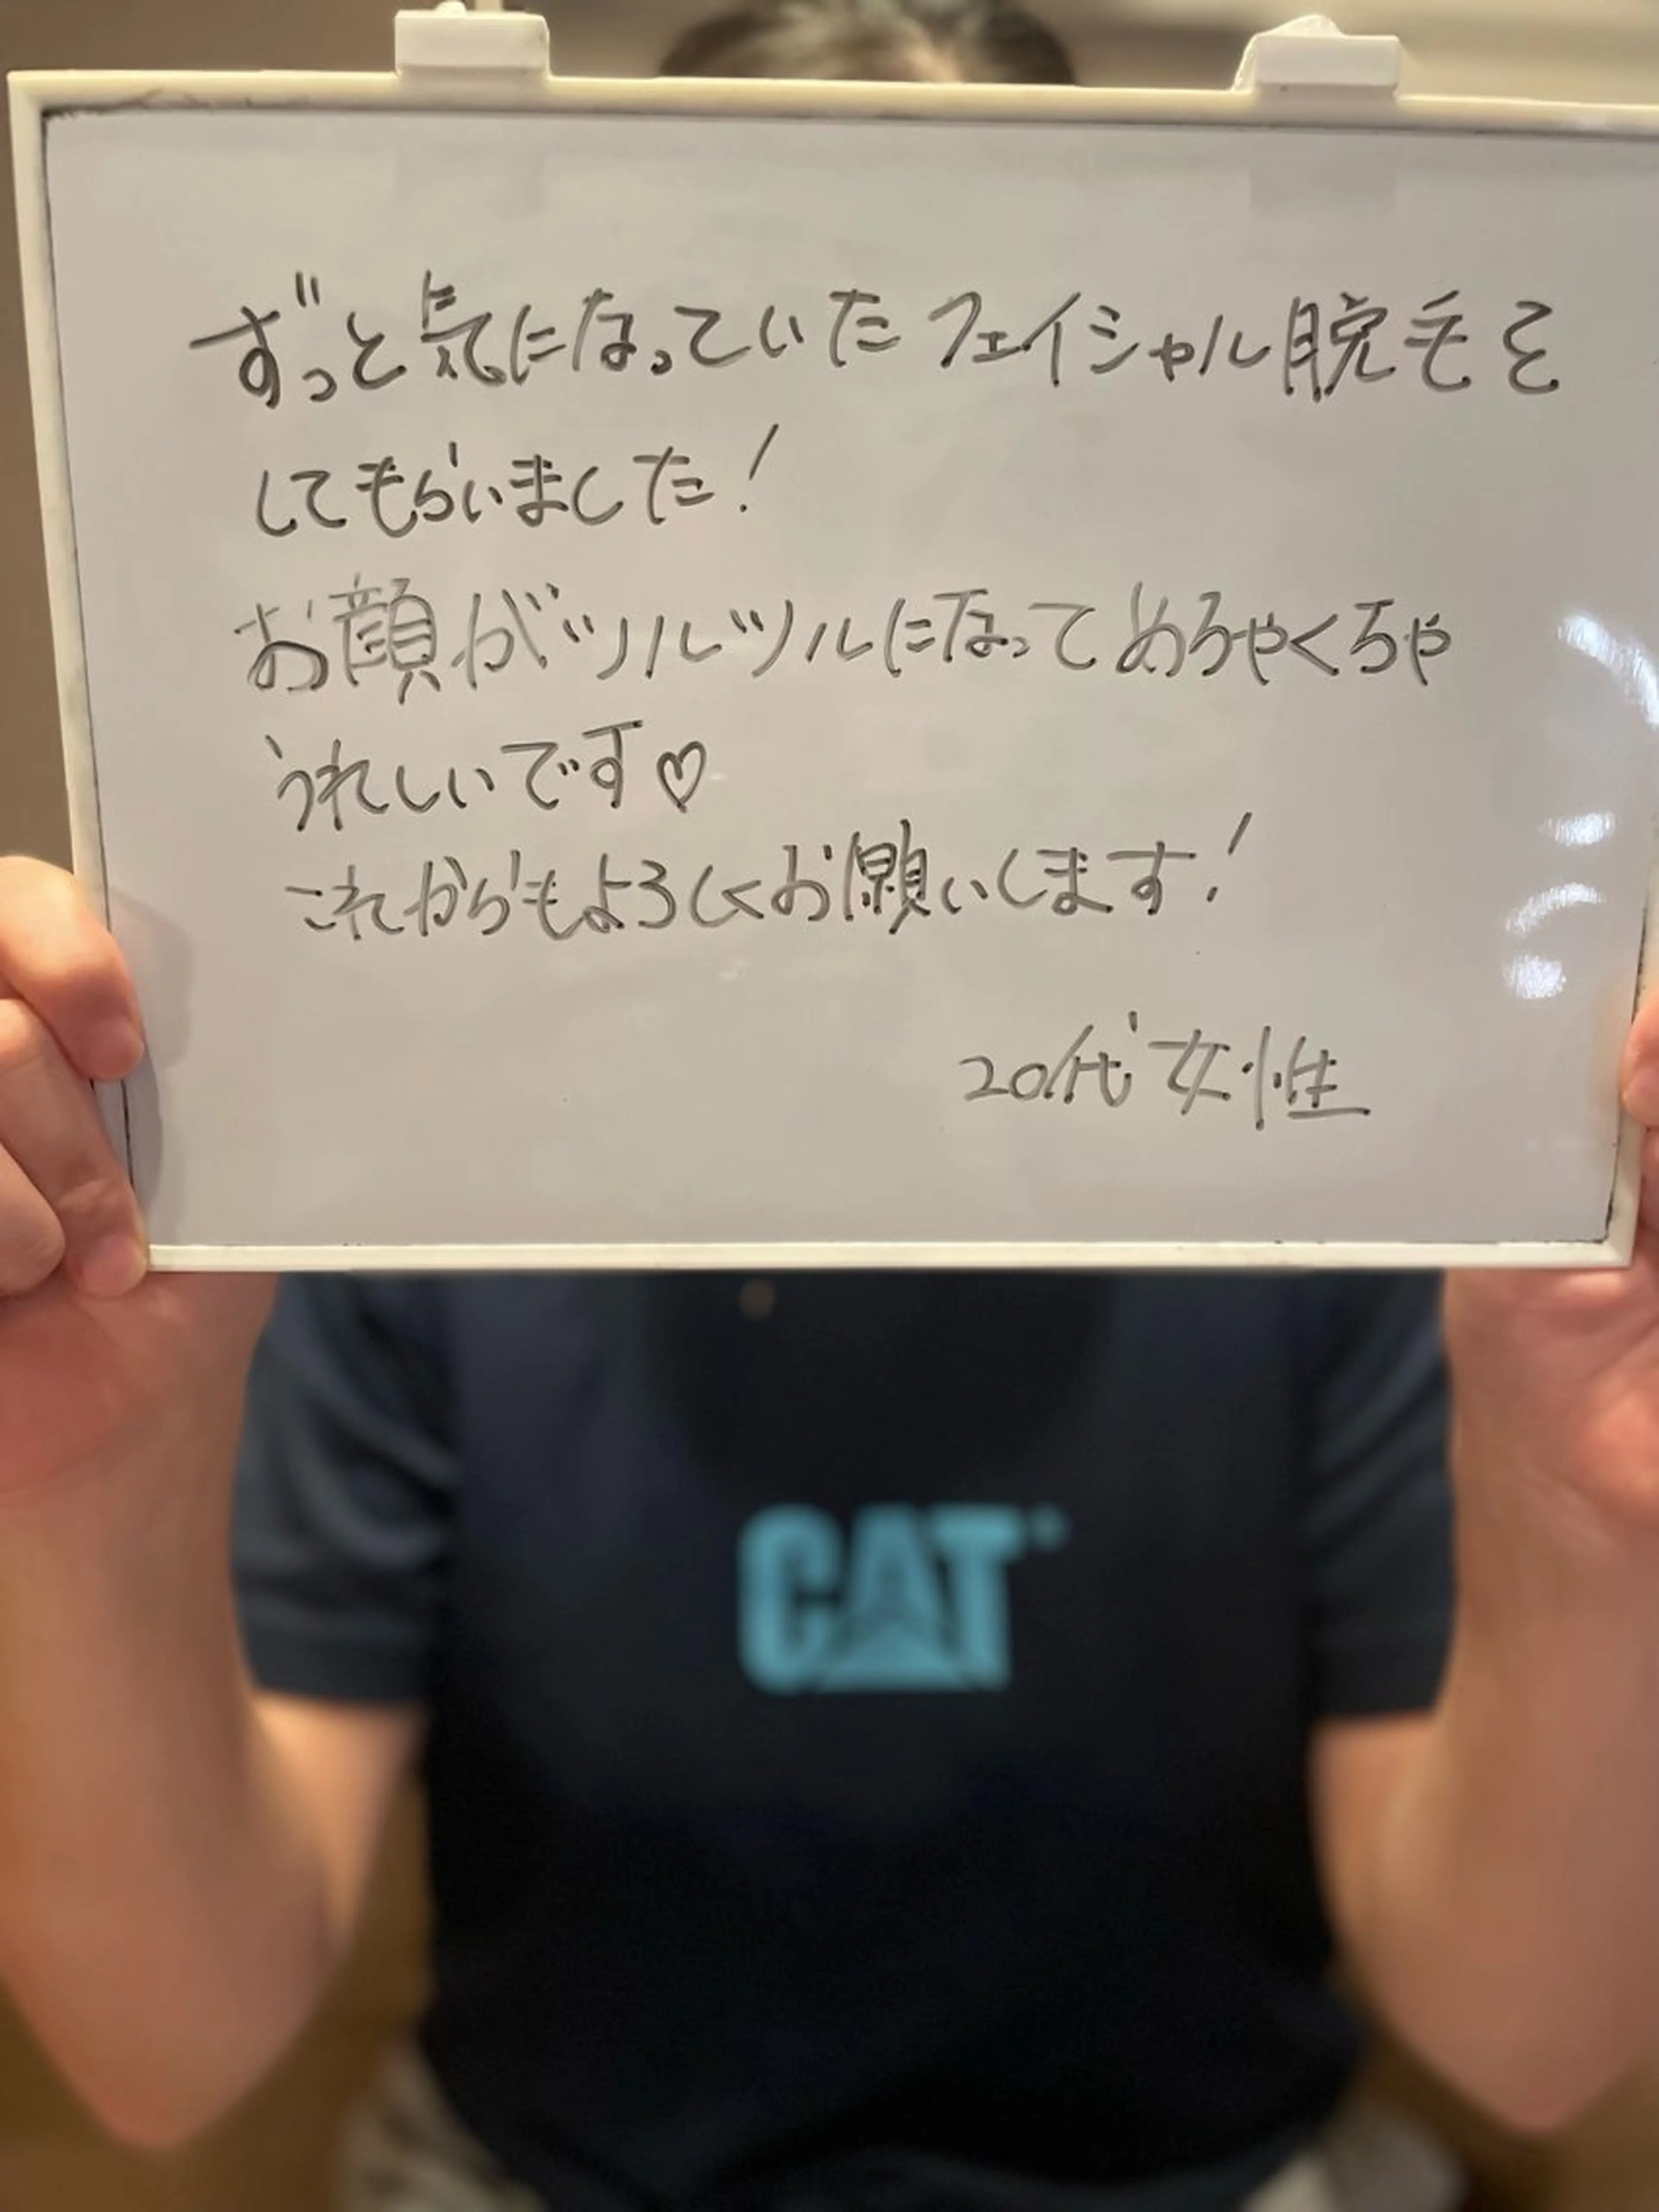 ずっと気になっていたフェイシャル脱毛を
してもらいました!
お顔がツルツルになってめちゃくちゃ
うれしいです♡
これからもよろしくお願いします!
20代女性
CAT